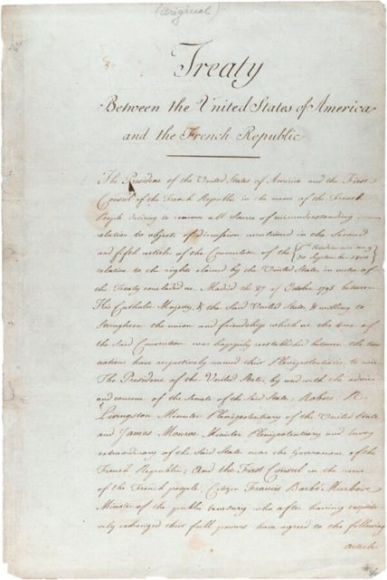 (Original)
Treaty
Between the United States of America
and the French Republic
The President of the United States of America and the First
Consul of the French Republic in the name of the French
People desiring to remove all Source of misunderstanding
relative to objects of discussion mentioned in the Second
and fifth articles of the Convention of the 8th Vendémiaire an 9
30 September 1800
relative to the rights claimed by the United States in virtue of
the Treaty concluded at Madrid the 27 of October 1795 between
His Catholic Majesty, & the Said United States, & willing to
Strengthen the union and friendship which at the time of
the Said Convention was happily reestablished between the two
nations have respectively named their Plenipotentiaries to wit
The President of the United States, by and with the advice
and consent of the Senate of the Said States, Robert R.
Livingston Minister Plenipotentiary of the United States
and James Monroe Minister Plenipotentiary and Envoy
extraordinary of the Said States near the Government of the
French Republic; And the First Consul in the name
of the French people, Citizen Francis Barbé Marbois
Minister of the public treasury who after having respect-
ively exchanged their full powers have agreed to the following
articles